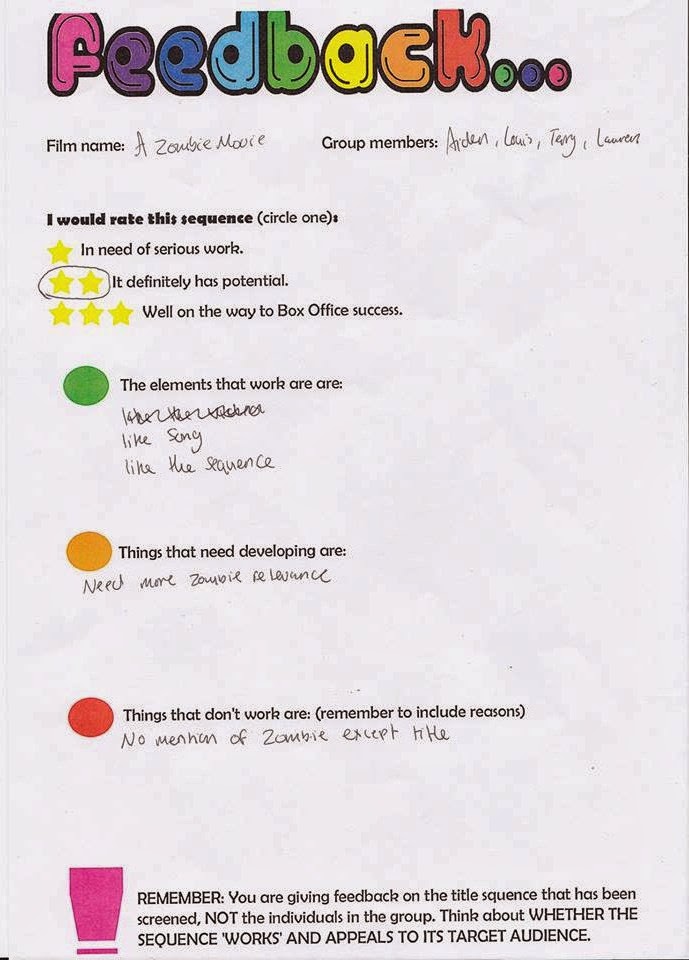 Feedback...
Film name: A Zombie Movie Group members: Aiden, Louis, Terry, Lauren
I would rate this sequence (circle one):
In need of serious work.
It definitely has potential.
Well on the way to Box Office success.
The elements that work are are:
like song
like the sequence
Things that need developing are:
Need more zombie relevance
Things that don't work are: (remember to include reasons)
No mention of Zombie except title
REMEMBER: You are giving feedback on the title squence that has been
screened, NOT the individuals in the group. Think about WHETHER THE
SEQUENCE 'WORKS' AND APPEALS TO ITS TARGET AUDIENCE.